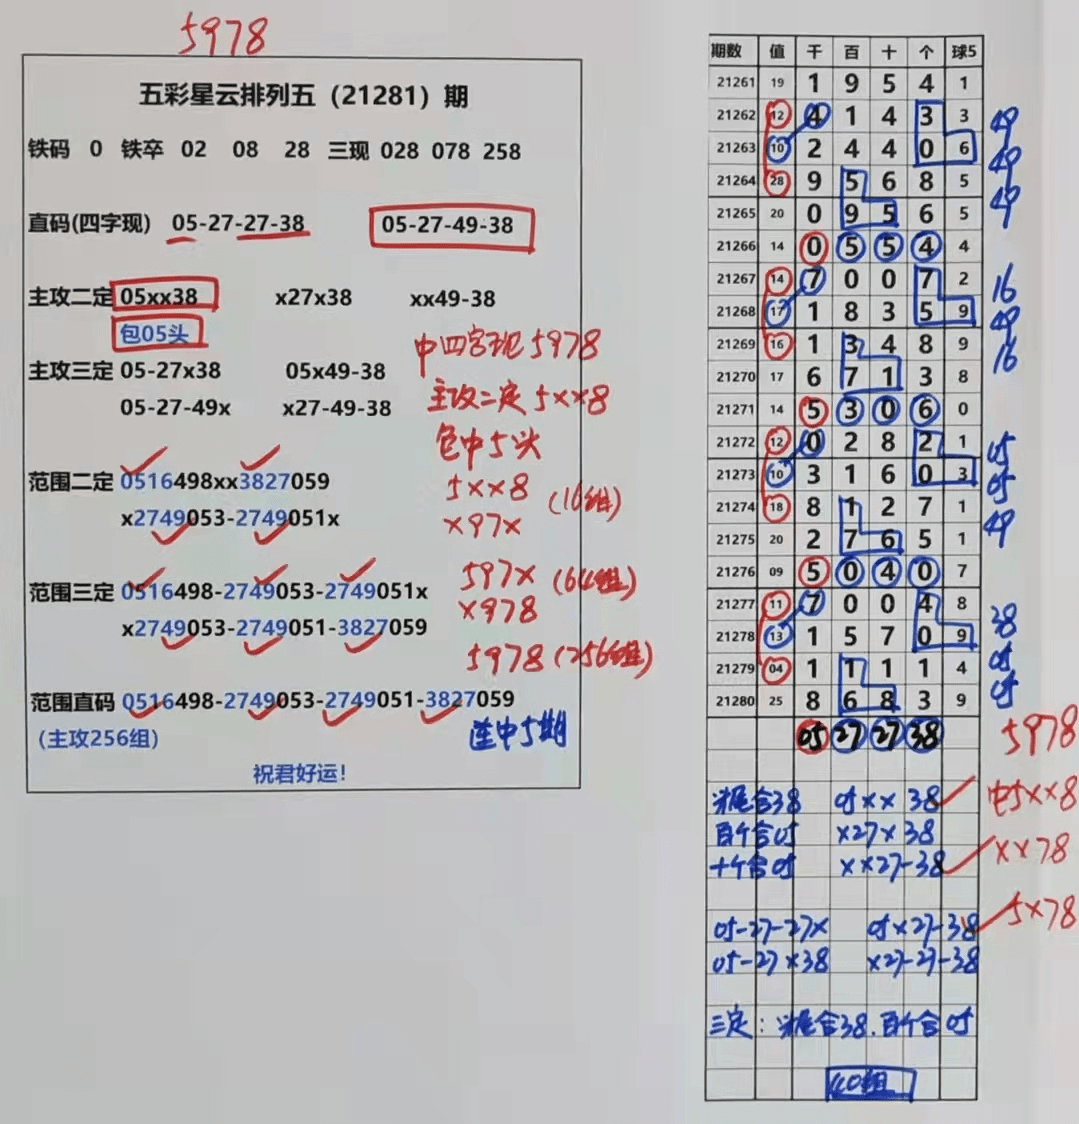 5978
五彩星云排列五（21281）期
铁码 0 铁卒 02 08 28 三现 028 078 258
直码(四字现) 05-27-27-38 05-27-49-38
主攻二定 05xx38 x27x38 xx49-38
包05头
中四字现5978
主攻三定 05-27x38 05x49-38
主攻二定5xx8
05-27-49x x27-49-38
包中5头
范围二定 0516498xx3827059
5xx8 (16组)
x2749053-2749051x
x97x
范围三定 0516498-2749053-2749051x
597x (64组)
x2749053-2749051-3827059
x978
5978 (256组)
范围直码 0516498-2749053-2749051-3827059
(主攻256组) 连中5期
祝君好运!
期数 值 千 百 十 个 球5
21261 19 1 9 5 4 1
21262 12 4 1 4 3 3 49
21263 10 2 4 4 0 6 49
21264 28 9 5 6 8 5 49
21265 20 0 9 5 6 5
21266 14 0 5 5 4 4
21267 14 7 0 0 7 2 16
21268 17 1 8 3 5 9 49
21269 16 1 3 4 8 9 16
21270 17 6 7 1 3 8
21271 14 5 3 0 6 0
21272 12 0 2 8 2 1 05
21273 10 3 1 6 0 3 05
21274 18 8 1 2 7 1 49
21275 20 2 7 6 5 1
21276 09 5 0 4 0 7
21277 11 7 0 0 4 8 38
21278 13 1 5 7 0 9
21279 04 1 1 1 1 4 05
21280 25 8 6 8 3 9 05
05 27 27 38 5978
合38 05xx38 中5xx8
百个合05 x27x38
十个合05 xx27-38 xx78
05-27-27x 05x27-38 5x78
05-27x38 x27-27-38
三定: 合38.百个合05
40组